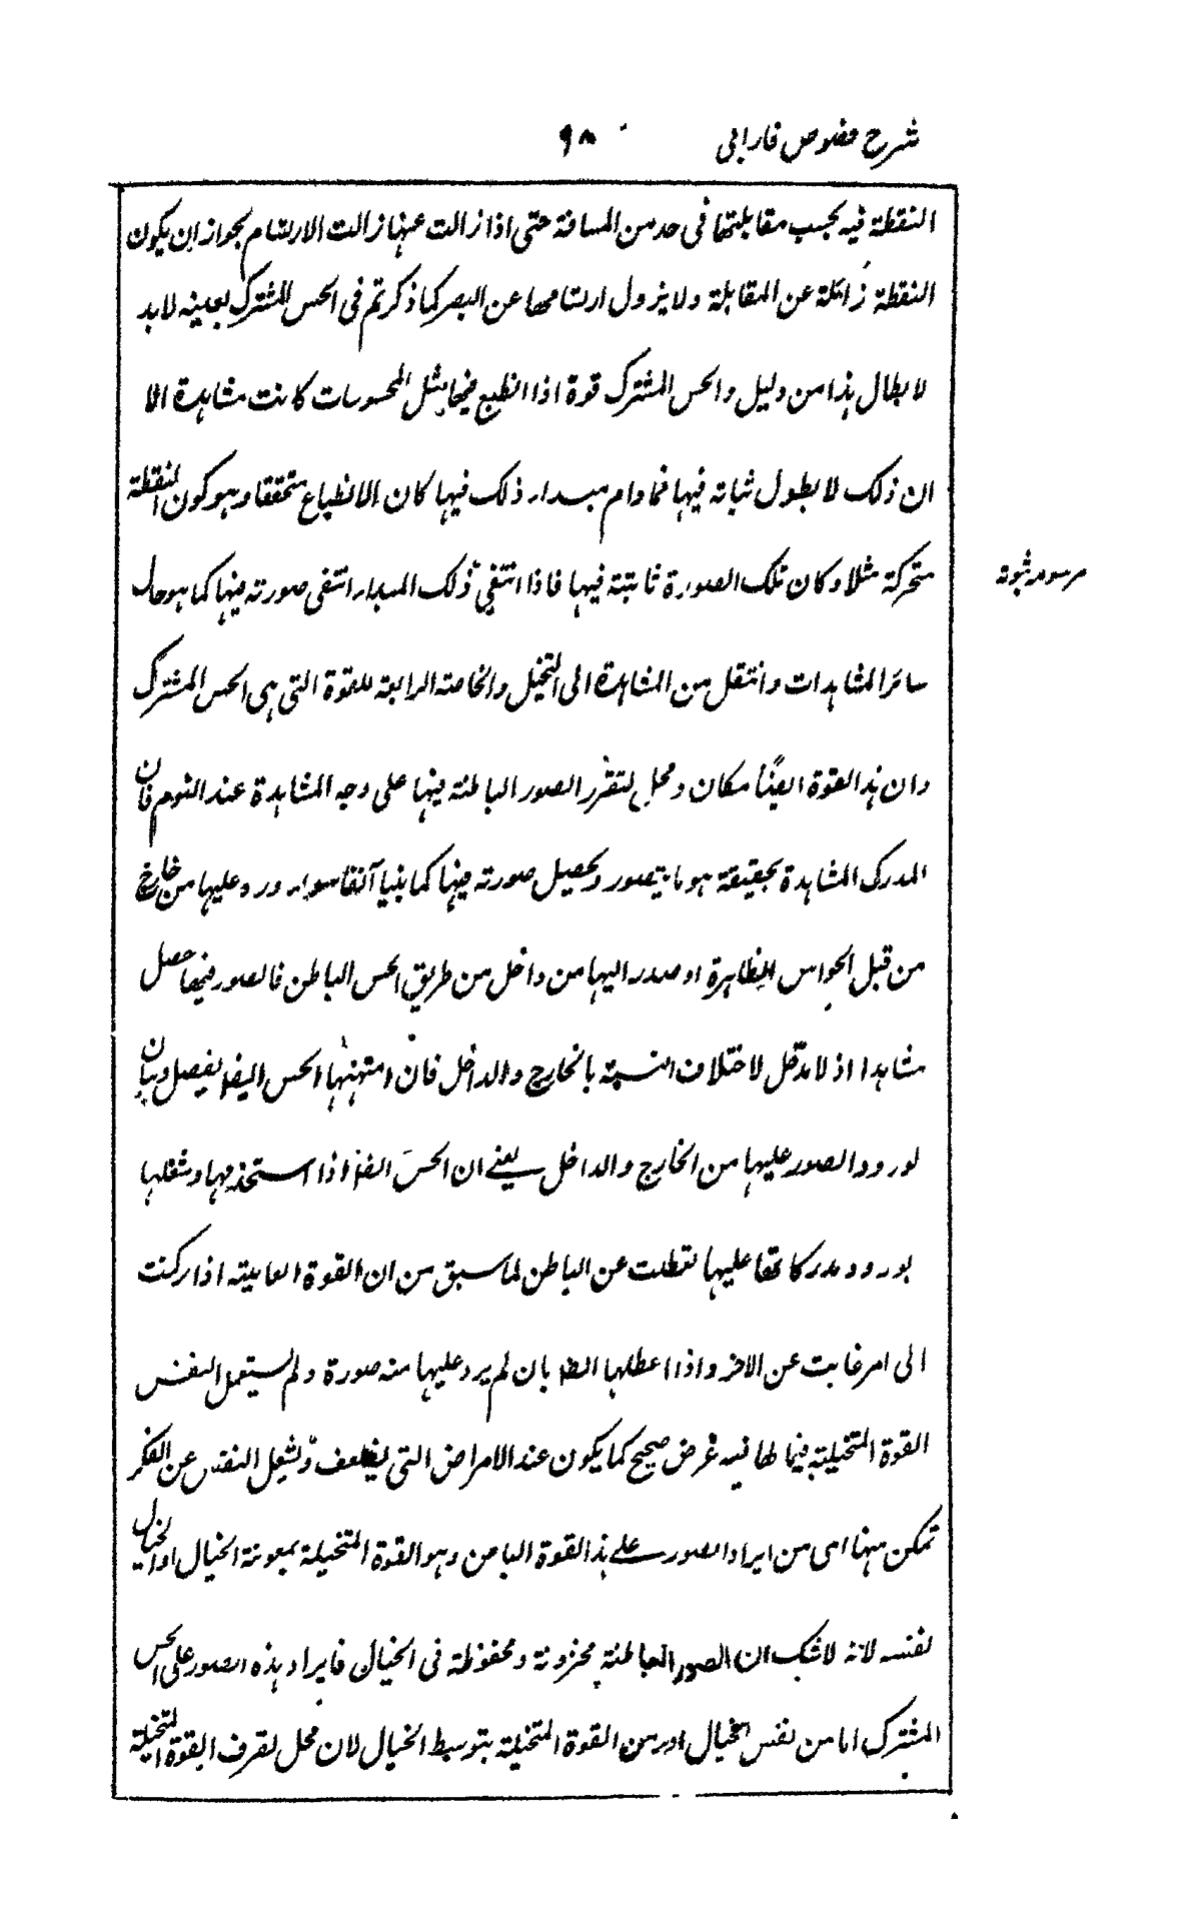 شرح فصوص فارابی ٩٨
النقطة فيه بحسب مقابلتها فی حد من المسافة حتی اذا زالت عنها زالت الارتسام بجواز ان يكون
النقطة زائلة عن المقابلة ولا يزول ارتسامها عن البصر كما ذكرتم فی الحس المشترك بعينه لا بد
لابطال هذا من دليل والحس المشترك قوة اذا انطبع فيها مثل المحسوسات كانت مشاهدة الا
ان ذلك لا يطول ثباته فيها فما دام مبدء ذلك فيها كان الانطباع متحققا وهو كون النقطة
متحركة مثلا وكان تلك الصورة ثابتة فيها فاذا انتفی ذلك المبدء انتفی صورته منها كما هو حال
مرسومه ثبوته
سائر المشاهدات وانتقل من المشاهدة الی التخيل والخاصة الرابعة للقوة التی هی الحس المشترك
وان هذه القوة ايضًا مكان ومحل لتقرر الصور الباطنة فيها علی وجه المشاهدة عند النوم فان
المدرك المشاهدة بحقيقة هو ما يتصور ويحصل صورته فيها كما بينا آنفا سواء ورد عليها من خارج
من قبل الحواس الظاهرة او صدر اليها من داخل من طريق الحس الباطن فالصور فيها حصل
مشاهدا اذ لا مدخل لاختلاف النسبة بالخارج والداخل فان امتهنها الحس الظا لفصل وبيان
لورود الصور عليها من الخارج والداخل يعنے ان الحس الظا اذا استخدمها وشغلها
بورود مدركاتها عليها تعطلت عن الباطن لما سبق من ان القوة العاميته اذا ركنت
الی امر غابت عن الآخر واذا اعطلها الظا بان لم يرد عليها منه صورة ولم يستعمل النفس
القوة المتخيلة فيما لها فيه غرض صحيح كما يكون عند الامراض التی يضعف ويشغل النفس عن الفكر
تمكن منها ای من ايراد الصور علے هذه القوة الباطن وهو القوة المتخيلة بمعونة الخيال او الخيال
لنفسه لانه لا شك ان الصور الباطنة مخزونة ومحفوظة فی الخيال فايراد هذه الصور علی الحس
المشترك اما من نفس الخيال او من القوة المتخيلة بتوسط الخيال لان محل تصرف القوة المتخيلة